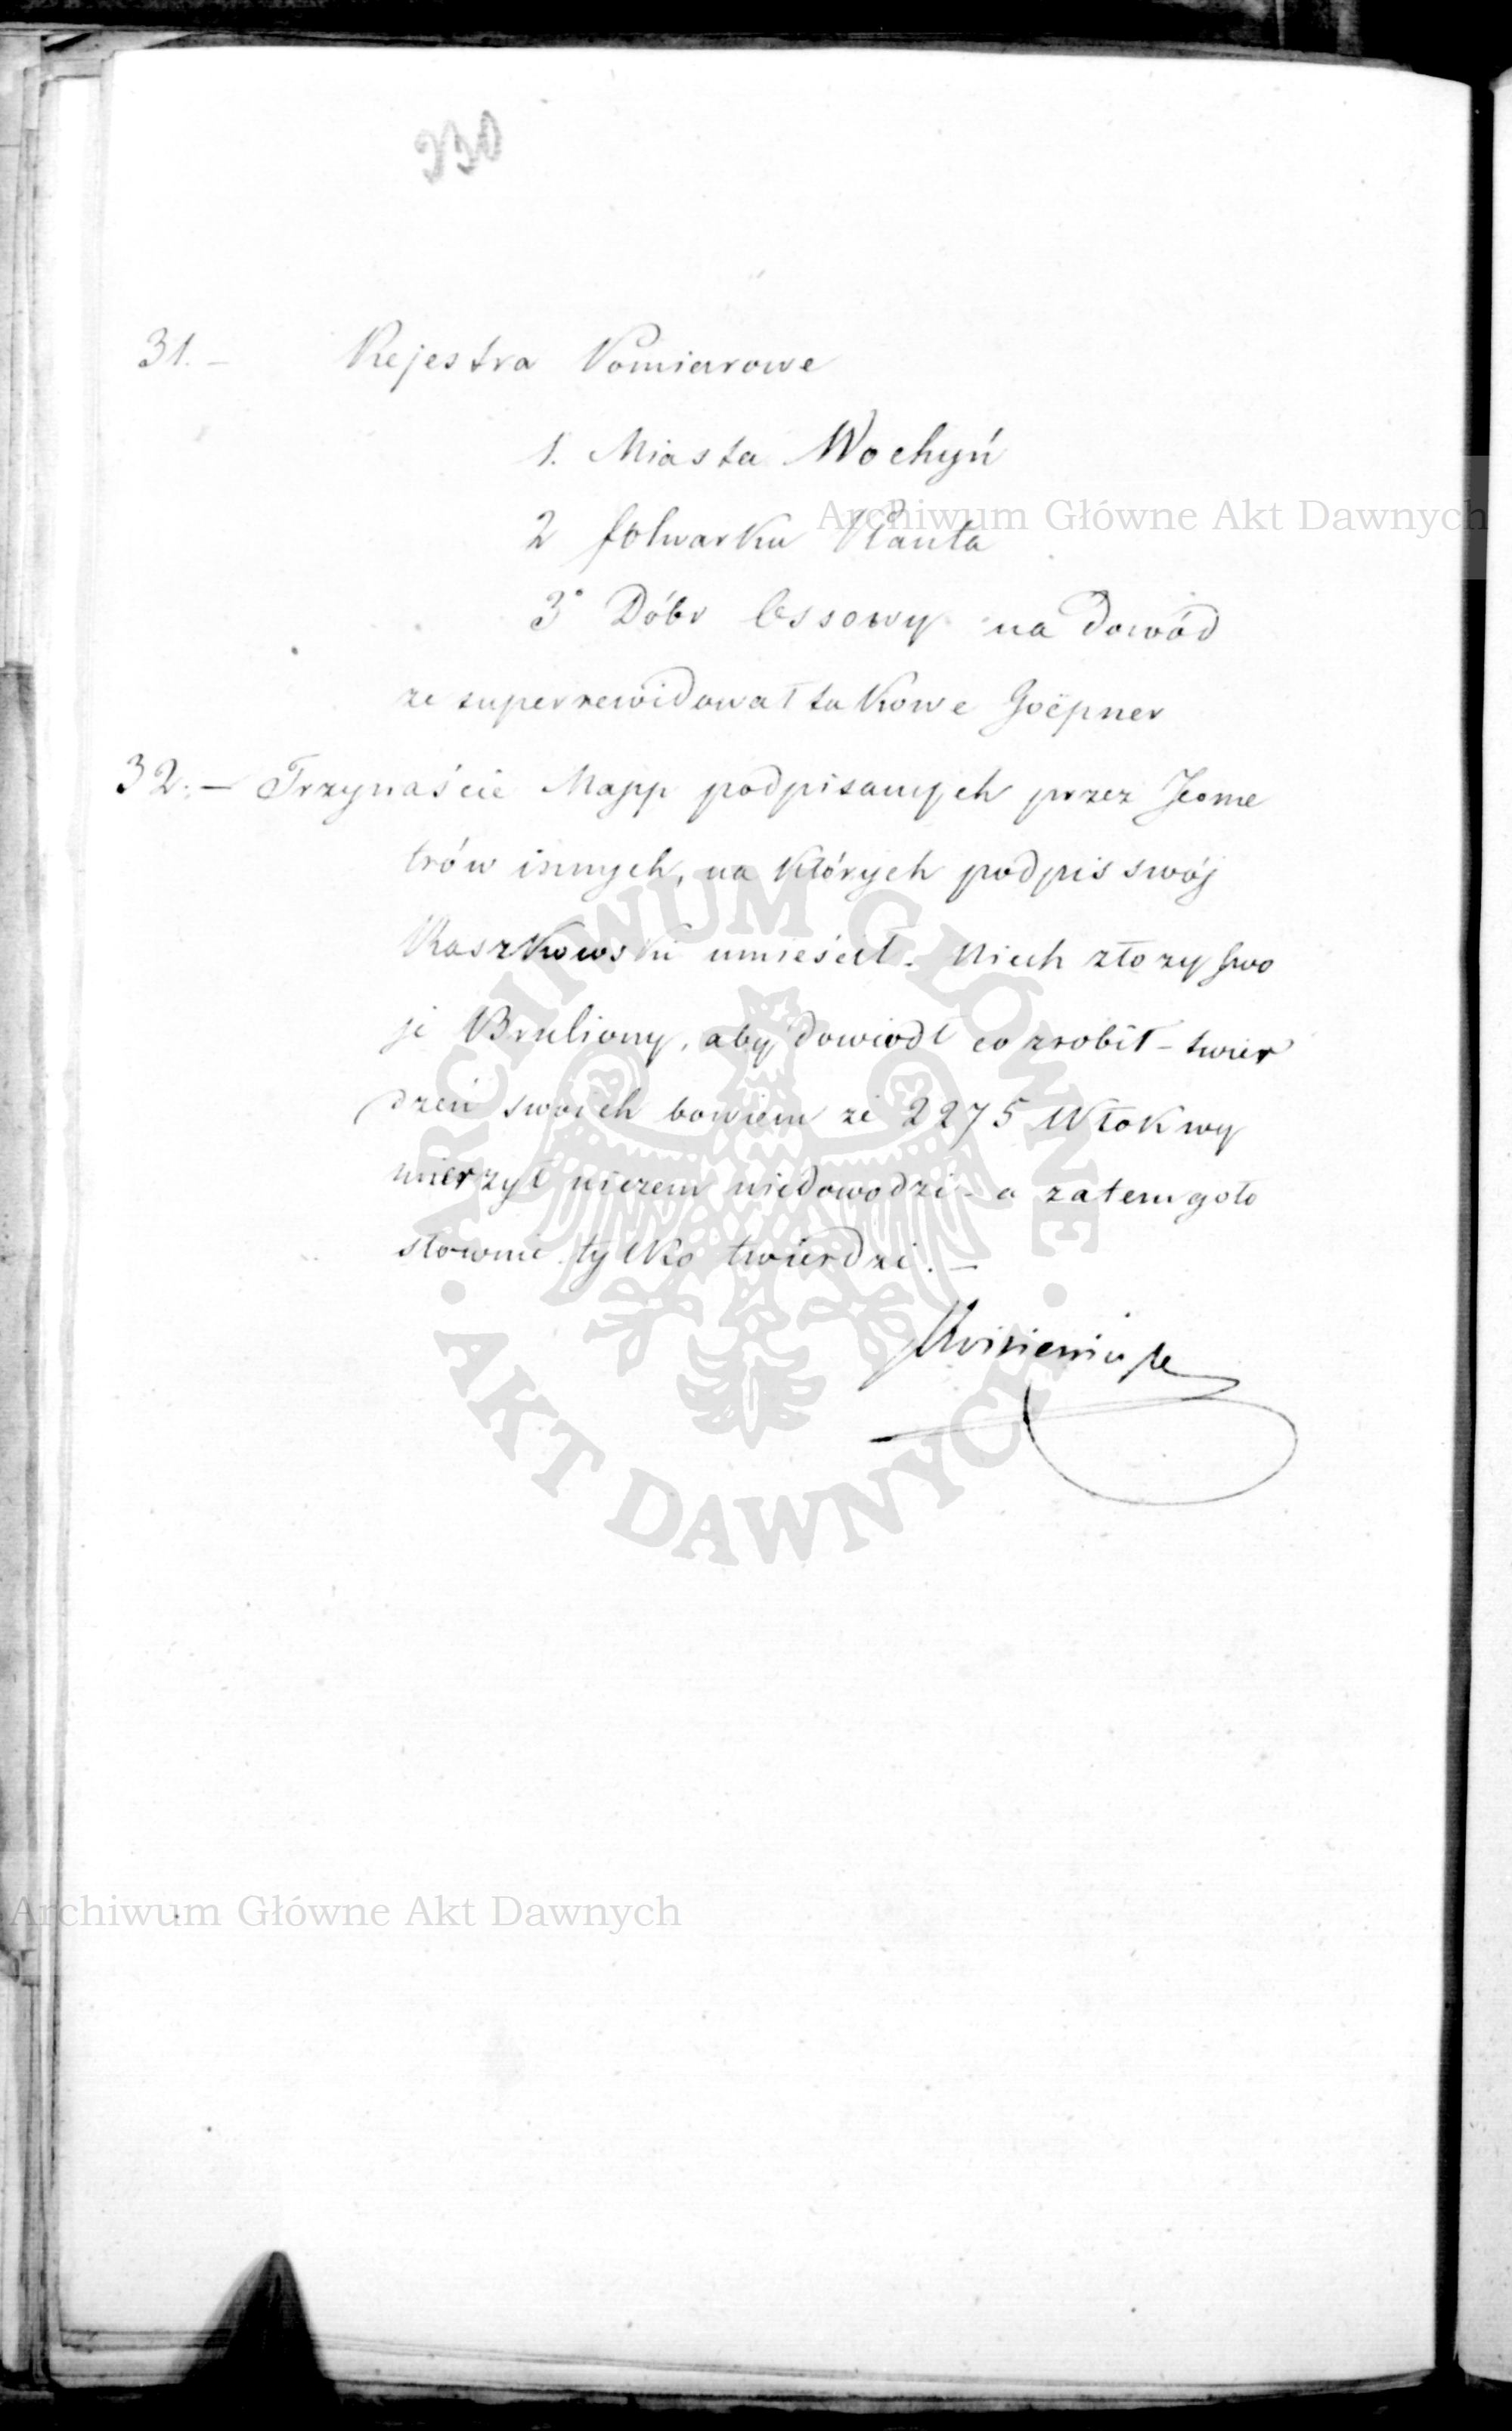 330
31. – Rejestra Pomiarowe
1. Miasta Wochyń
2 folwarku Planta
3° Dóbr Ossowy na dowód
że superrewidował takowe Goëpner
32. – Trzynaście Mapp podpisanych przez Jeome
trów innych, na których podpis swój
Raszkowski umieścił. Niech złozy swo
je Bruliony, aby dowiodł co zrobił – twier
dzeń swoich bowiem ze 2275 Włok wy
mierzył niczem niedowodzi – a zatem goło
słownie tylko twierdzi. –
Archiwum Główne Akt Dawnych
ARCHIWUM GŁÓWNE · AKT DAWNYCH ·
Archiwum Główne Akt Dawnych